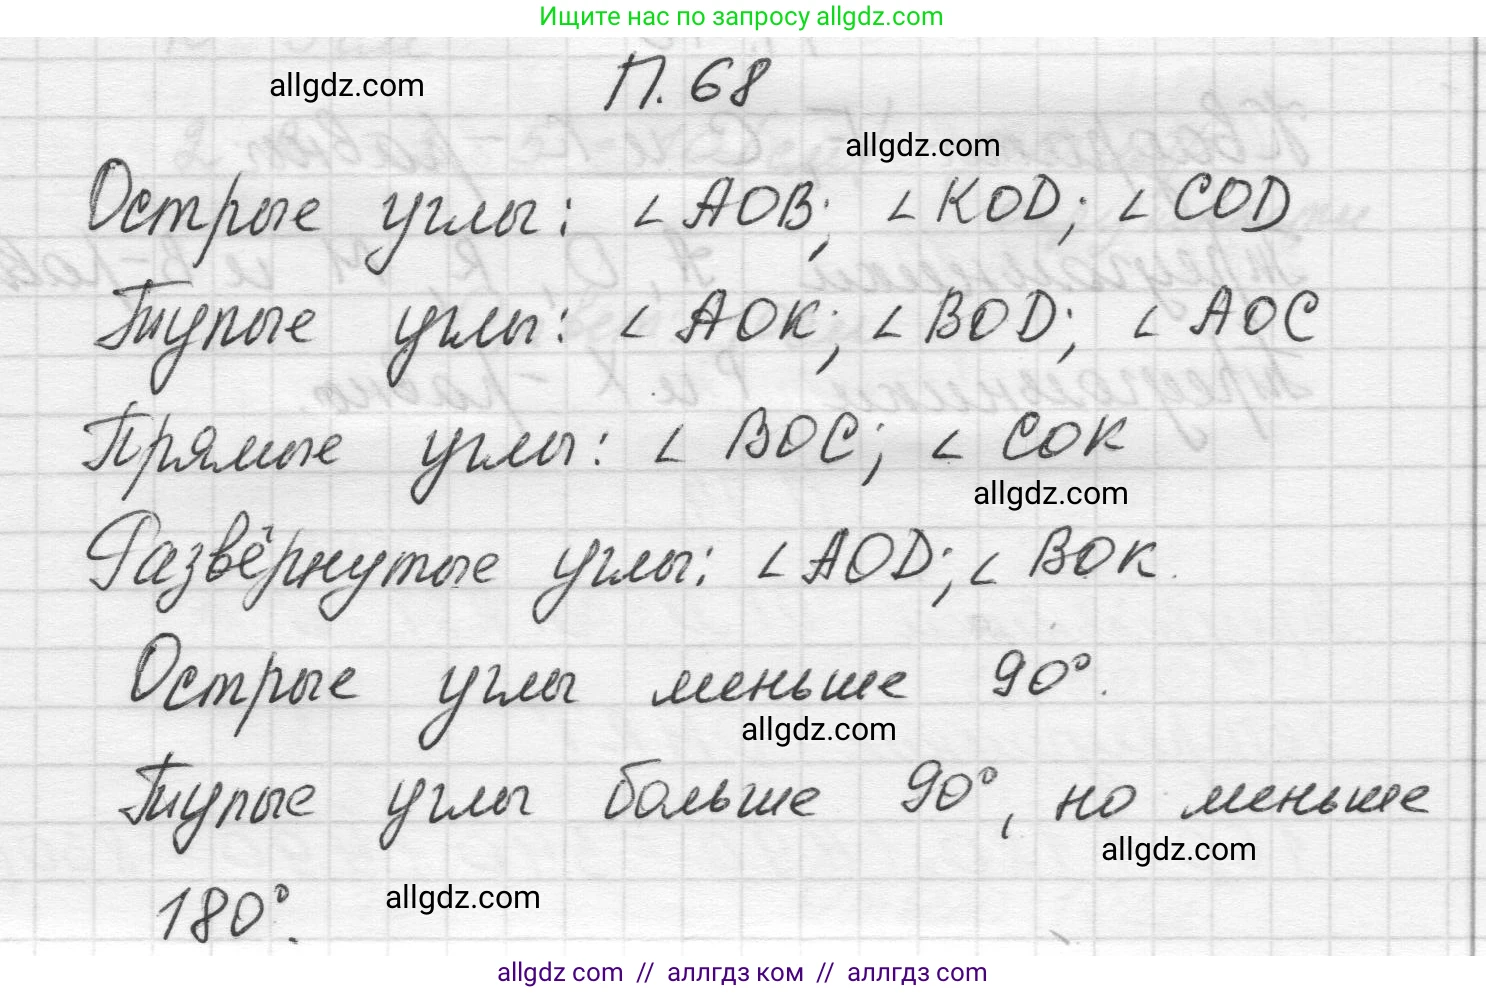 Ищите нас по запросу allgdz.com
allgdz.com
П. 68
allgdz.com
Острые углы: ∠AOB; ∠KOD; ∠COD
Тупые углы: ∠AOK; ∠BOD; ∠AOC
Прямые углы: ∠BOC; ∠COK
allgdz.com
Развёрнутые углы: ∠AOD; ∠BOK.
Острые углы меньше 90°.
allgdz.com
Тупые углы больше 90°, но меньше
allgdz.com
180°.
allgdz.com
allgdz com // аллгдз ком // аллгдз com